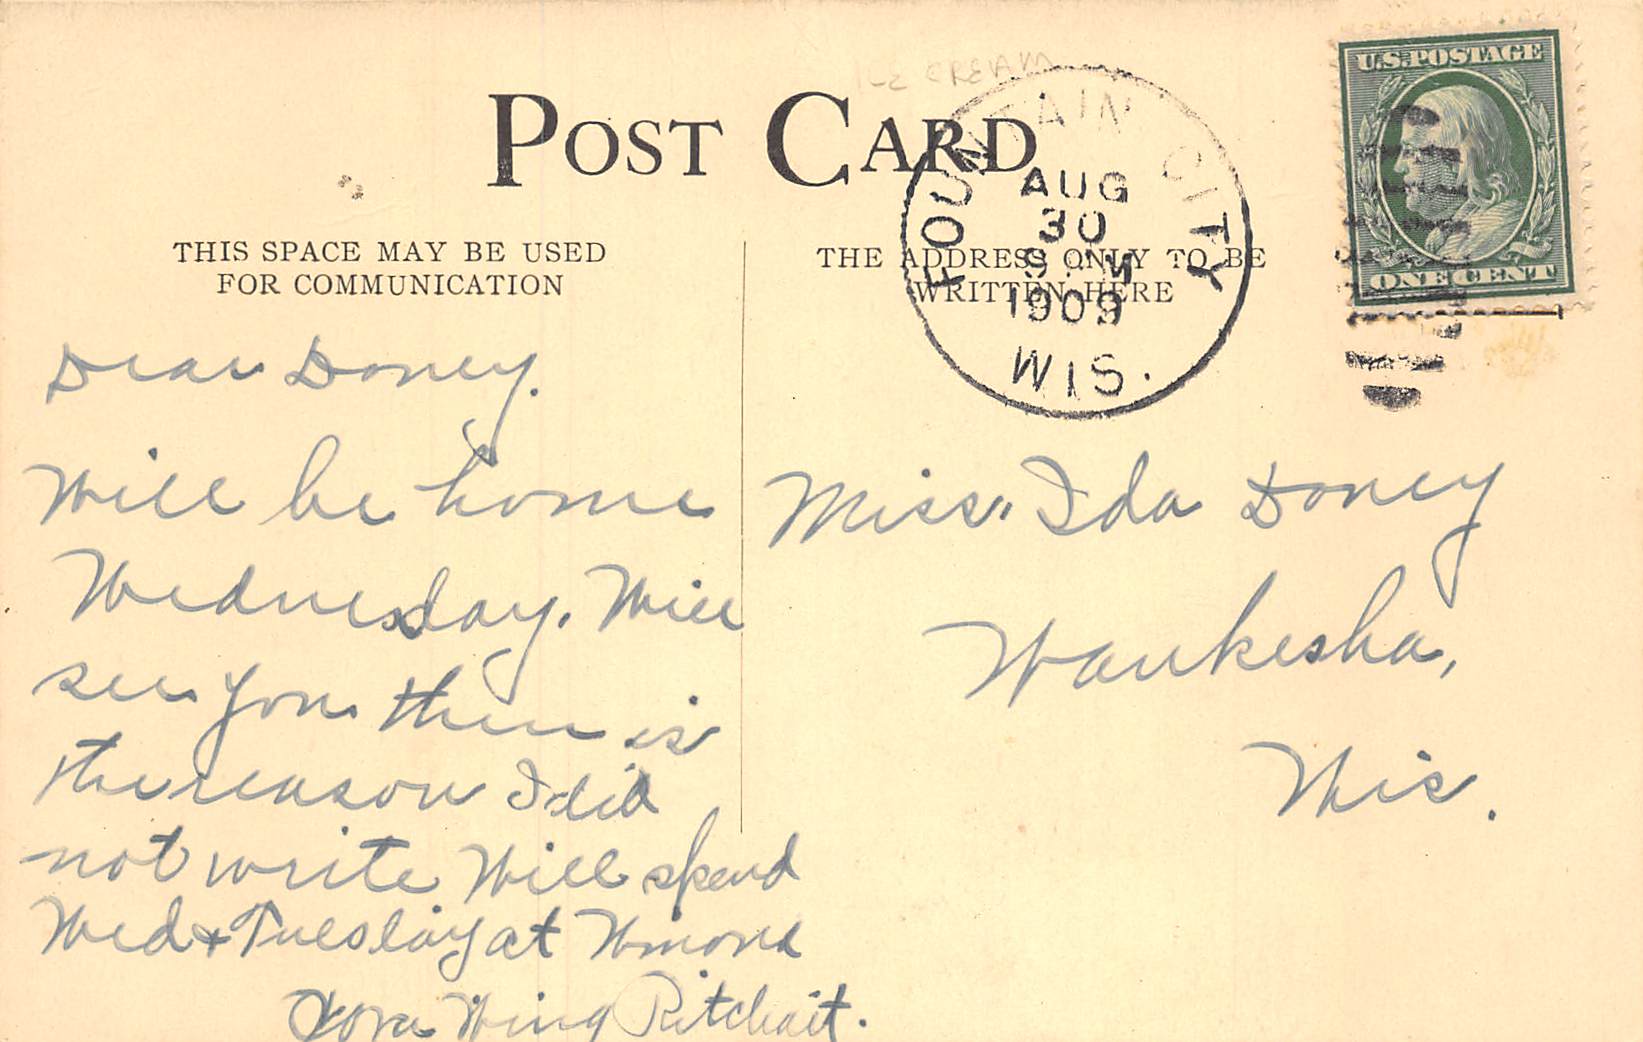 ICE CREAM
POST CARD
U.S. POSTAGE
ONE CENT
FOUNTAIN CITY
AUG
30
1909
WIS.
THIS SPACE MAY BE USED
FOR COMMUNICATION
THE ADDRESS ONLY TO BE
WRITTEN HERE
Dear Doney.
Will be home
Wednesday. Will
see you then is
the reason I did
not write Will spend
Wed & Tueslay at Winona
Wing
Miss. Ida Doney
Waukesha,
Wis.